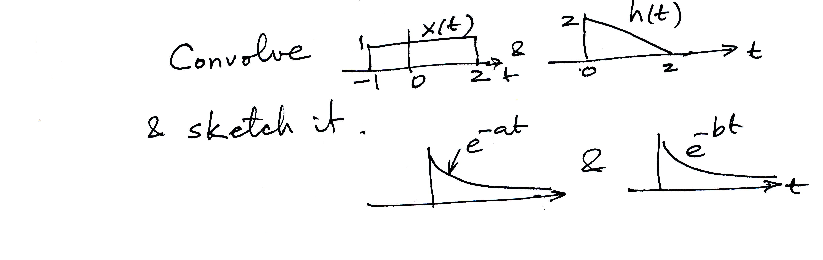 Convolve 1 x(t) -1 0 2 t & 2 h(t) 0 2 t
& sketch it.
e^-at & e^-bt t